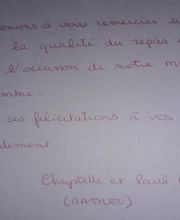 tenons à vous remercier
la qualité du repas
l'occasion de notre m
mbre.
ces félicitations à vos
lement.
Chrystelle et Paul
(MATHEU)